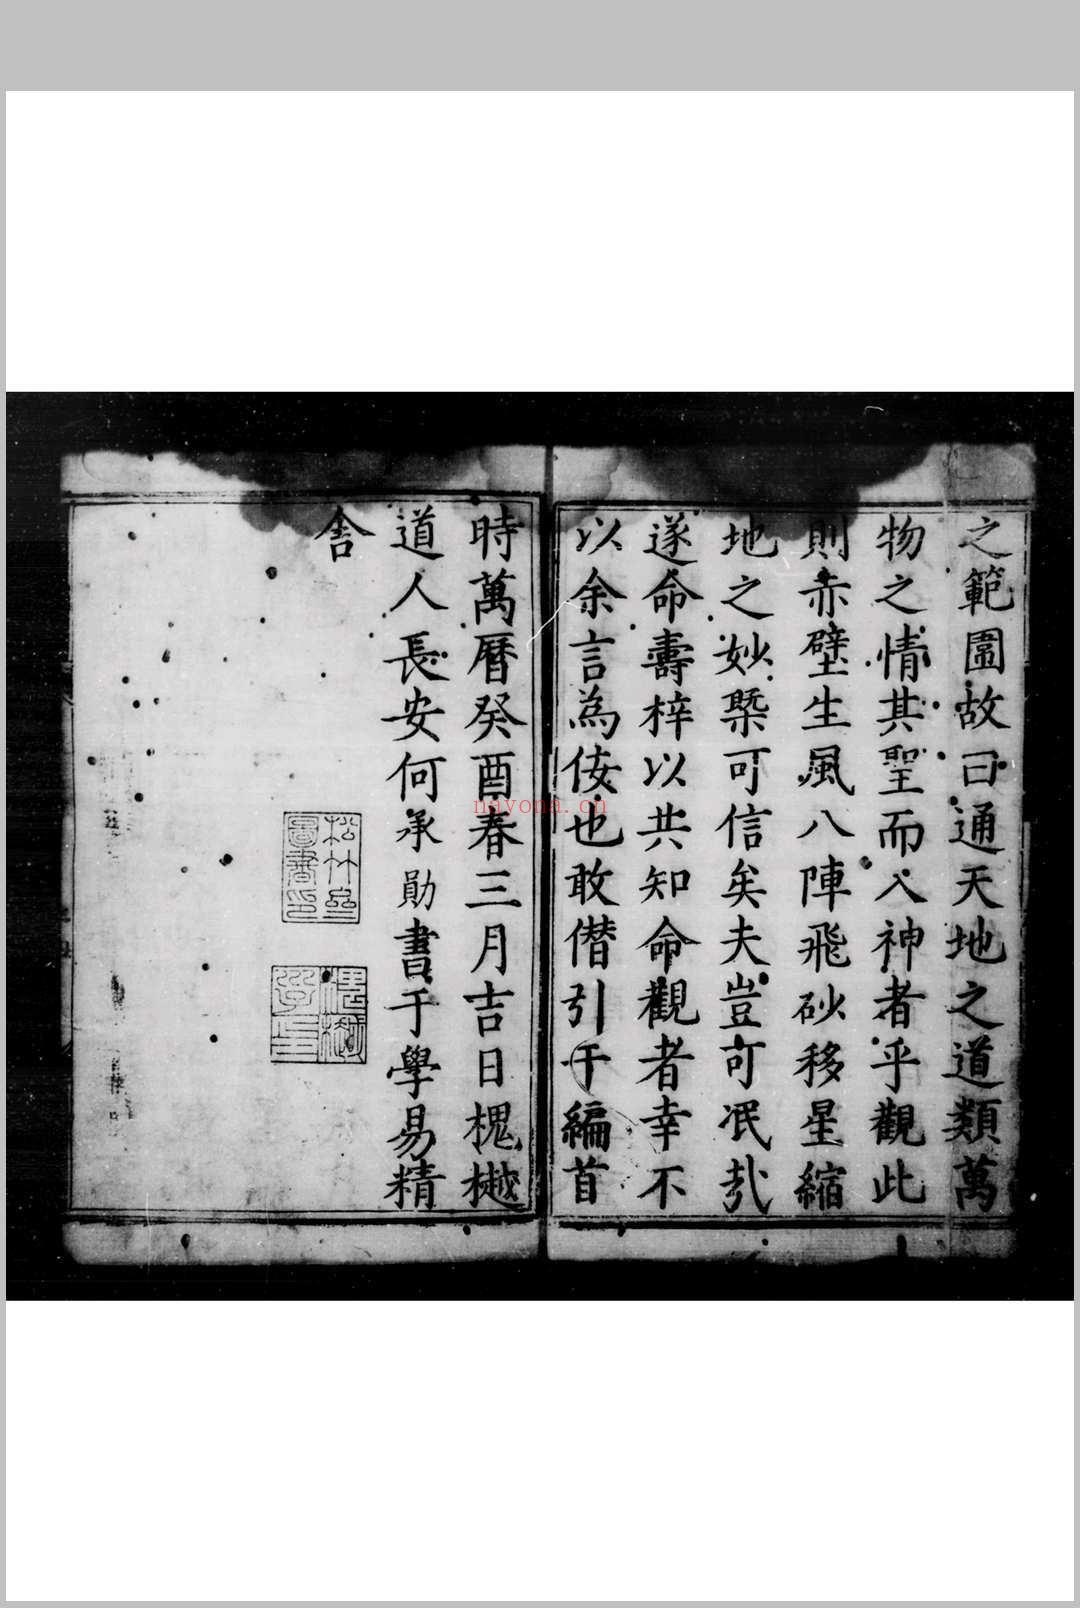 之範圍故曰通天地之道類萬
物之情其聖而入神者乎觀此
則赤壁生風八陣飛砂移星縮
地之妙槩可信矣夫豈可泯㢤
遂命壽梓以共知命觀者幸不
以余言為佞也敢僭引于編首
時萬曆癸酉春三月吉日槐樾
道人長安何承勛書于學易精
舎
松竹
圖書印
槐樾
nayona.cn